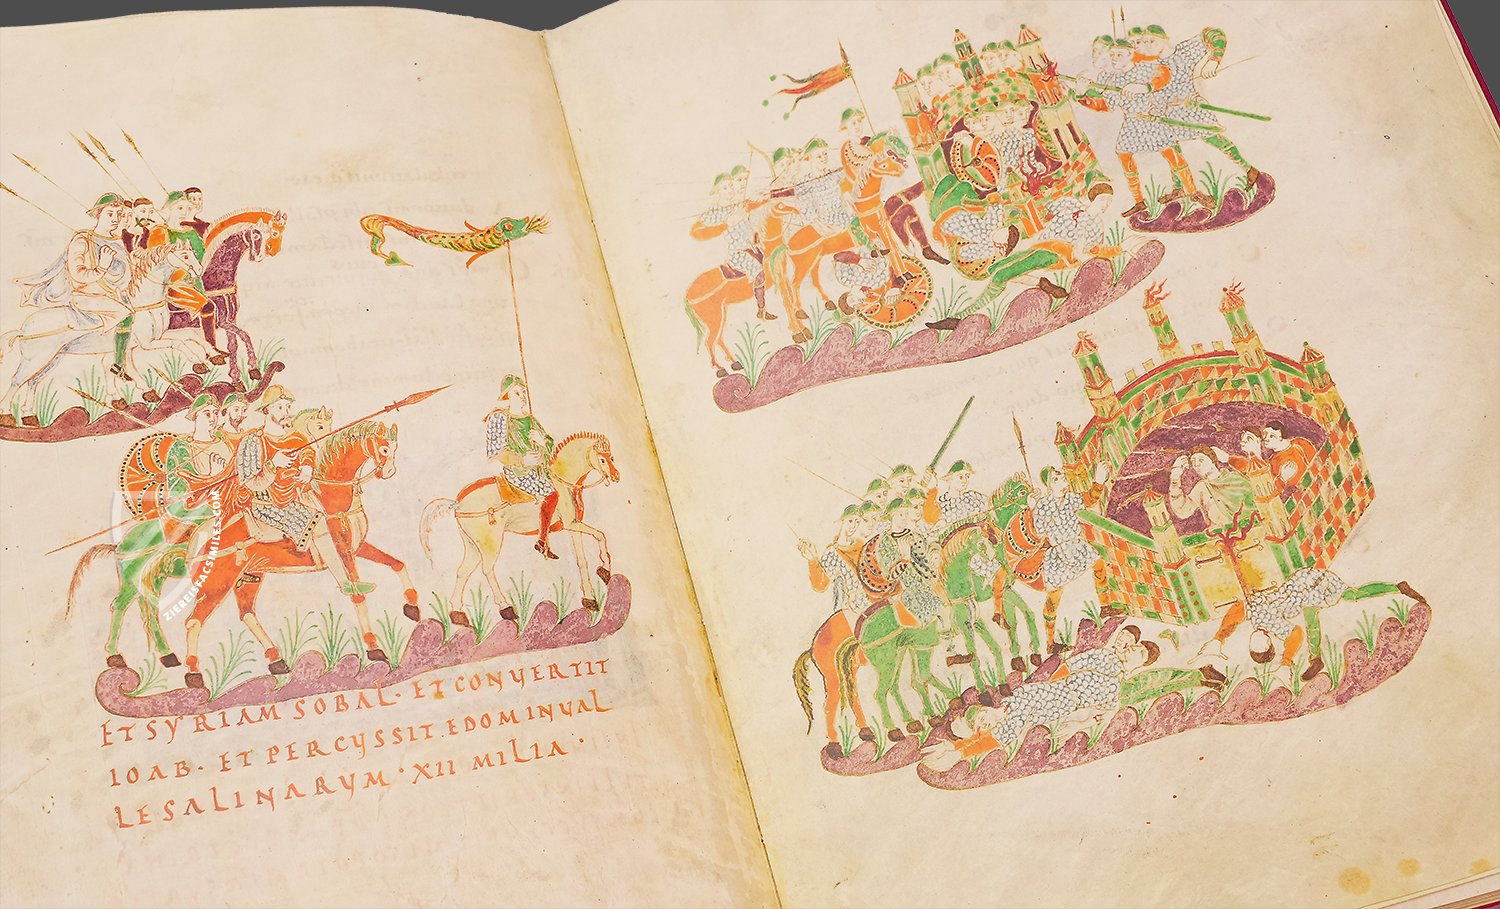 ET SYRIAM SOBAL· ET CONVERTIT
IOAB· ET PERCVSSIT EDOM IN VAL
LE SALINARVM· XII MILIA·
ZIEREIS FACSIMILES.COM